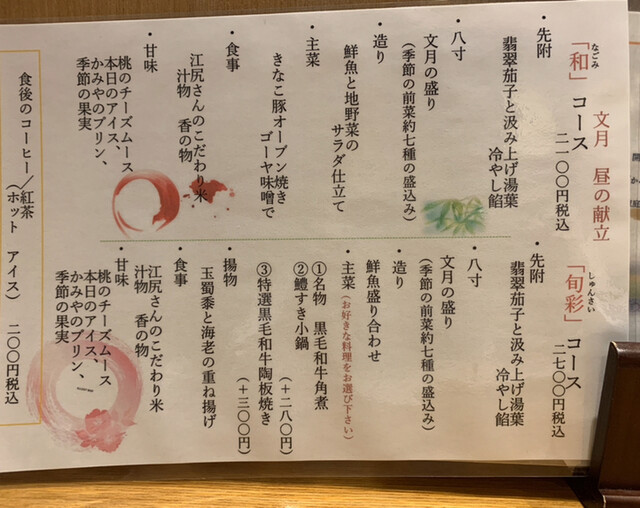 文月 昼の献立
なごみ
「和」コース
二一〇〇円税込
・先附
翡翠茄子と汲み上げ湯葉
冷やし餡
・八寸
文月の盛り
(季節の前菜約七種の盛込み)
・造り
鮮魚と地野菜の
サラダ仕立て
・主菜
きなこ豚オーブン焼き
ゴーヤ味噌で
・食事
江尻さんのこだわり米
汁物 香の物
・甘味
桃のチーズムース
本日のアイス、
かみやのプリン、
季節の果実
しゅんさい
「旬彩」コース
二七〇〇円税込
・先附
翡翠茄子と汲み上げ湯葉
冷やし餡
・八寸
文月の盛り
(季節の前菜約七種の盛込み)
・造り
鮮魚盛り合わせ
・主菜(お好きな料理をお選び下さい)
①名物 黒毛和牛角煮
②鱧すき小鍋
(+二八〇円)
③特選黒毛和牛陶板焼き
(+三〇〇円)
・揚物
玉蜀黍と海老の重ね揚げ
・食事
江尻さんのこだわり米
汁物 香の物
・甘味
桃のチーズムース
本日のアイス、
かみやのプリン、
季節の果実
食後のコーヒー/紅茶
(ホット アイス) 二〇〇円税込